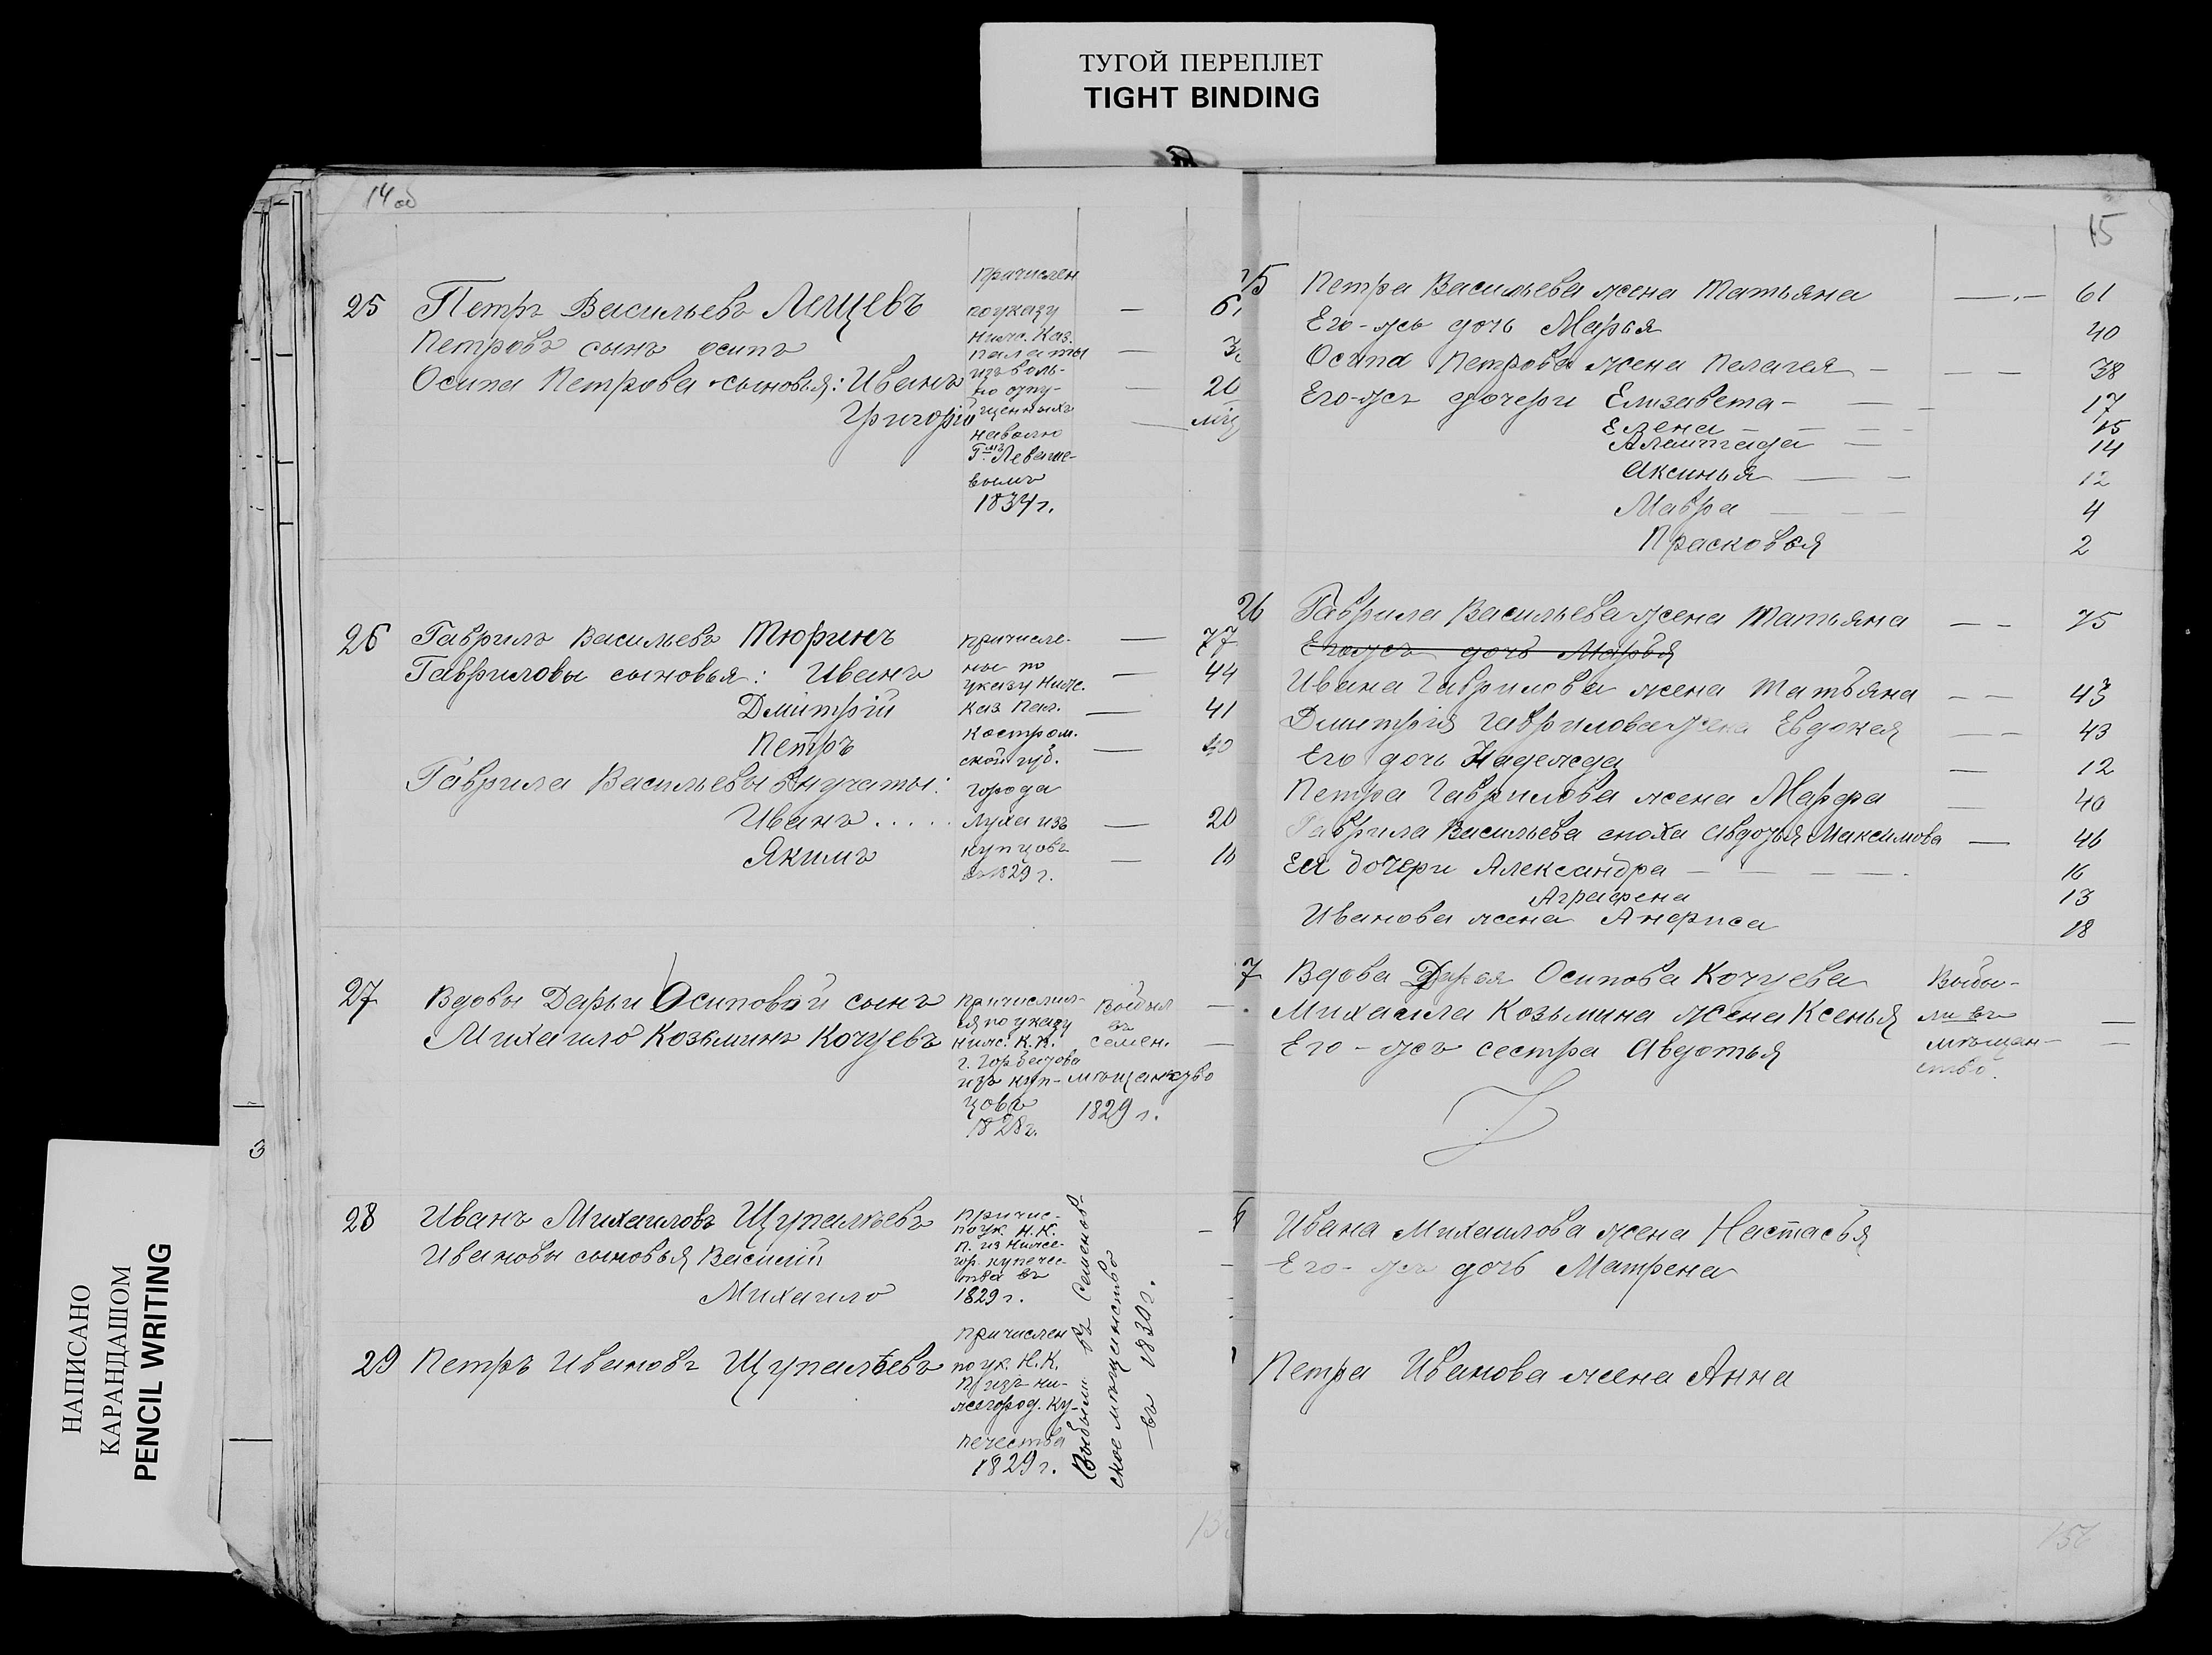 ТУГОЙ ПЕРЕПЛЕТ
TIGHT BINDING
НАПИСАНО
КАРАНДАШОМ
PENCIL WRITING
3
14 об
25 Петръ Васильевъ Лещевъ — 6
Петровъ сынъ осипъ — 3
Осипа Петрова сыновья: Иванъ — 20
Григорій —
причислен
по указу
Ниж. Каз.
палаты
из воль-
но отпу-
щенныхъ
на волю
Г-мъ Леваше-
вымъ
1834 г.
26 Гаврилъ Васильевъ Тюринъ — 77
Гавриловы сыновья: Иванъ — 44
Дмитрій — 41
Петръ — 40
Гаврила Васильевы внучаты:
Иванъ . . . . — 20
Якимъ — 18
причисле-
ны по
указу Ниж.
каз Пал.
костром.
ской губ.
города
Луха изъ
купцовъ
въ 1829 г.
27 Вдовы Дарьи Осиповой сынъ —
Михаило Козьминъ Кочуевъ —
причислил-
ся по указу
ниж. К. П.
г. Горбатова
изъ куп-
цовъ
1828 г.
Выбыл
въ
семен.
мѣщанство
1829 г.
28 Иванъ Михаиловъ Щупалѣевъ —
Ивановы сыновья Василій
Михаило
причис-
по ук. Н. К.
П. из Ниже-
гор. купечес-
тва въ
1829 г.
29 Петръ Ивановъ Щупалѣевъ
причислен
по ук. Н. К.
П изъ ни-
жегород. ку-
печества
1829 г.
Выбыли въ Семенов-
ское мѣщанство
въ 1830 г.
15
25 Петра Васильева жена Татьяна — 61
Его-жъ дочь Марья 40
Осипа Петрова жена Пелагея — — — 38
Его-жъ дочери Елизавета — — — 17
Елена — — — — 15
14
Аксинья — — 12
Мавра — — — 4
Прасковья 2
26 Гаврила Васильева жена Татьяна — — 75
Его жъ дочь Марья
Ивана Гаврилова жена Татьяна — — 43
Дмитрія Гаврилова жена Евдокея — — 43
Его дочь Надежда — 12
Петра Гаврилова жена Марфа — 40
Гаврила Васильева сноха Авдотья Максимова — 46
Ея дочери Александра — — — — 16
Аграфена 13
Иванова жена Анфиса 18
7 Вдова Дарья Осипова Кочуева
Михаила Козьмина жена Ксенья —
Его-жъ сестра Авдотья —
Выбы-
ли въ
мѣщан-
ство.
Ивана Михаилова жена Настасья
Его-жъ дочь Матрена
Петра Иванова жена Анна
156